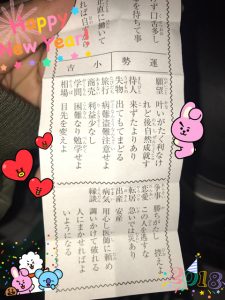 Happy
New Year
ず口舌多し
を持ちて事
正直に働いて
吉小
運勢
願望 叶いがたく利なけ
れど後自然成就す
待人 来ずたよりあり
失物 出てもてまどる
旅行 病難盗難注意せよ
商売 利益少なし
学問 困難なり勉学せよ
相場 目先を変えよ
争事 勝ちがたし 控え
恋愛 この人を逃すな
転居 急いでは災あり
出産 安産
病気 用心し医師に頼め
縁談 調いかけて破れる
人にまかせればよ
いようになる
2018